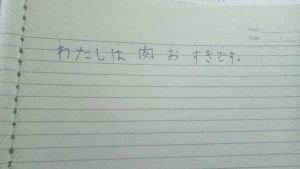 わたしは 肉 お すきです。